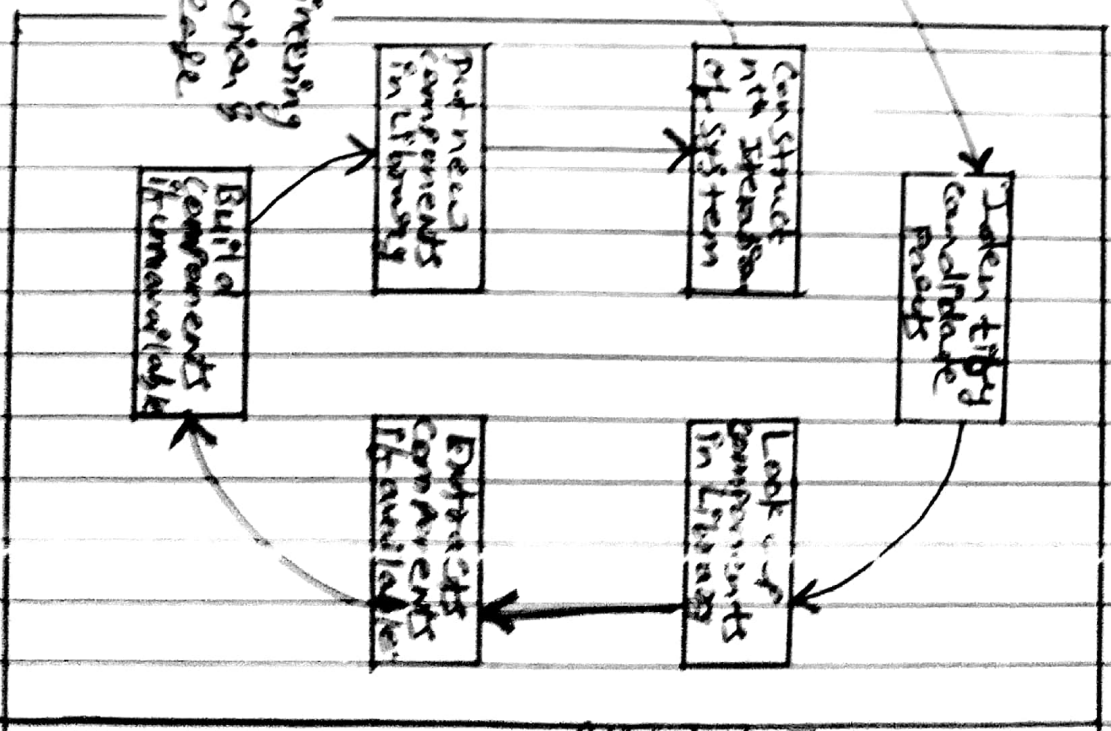 Identify
candidate
Parts
Look up
components
in Library
Extracts
Components
if available
Build
Components
if unavailable
Put new
components
in Library
Construct
nth
of System